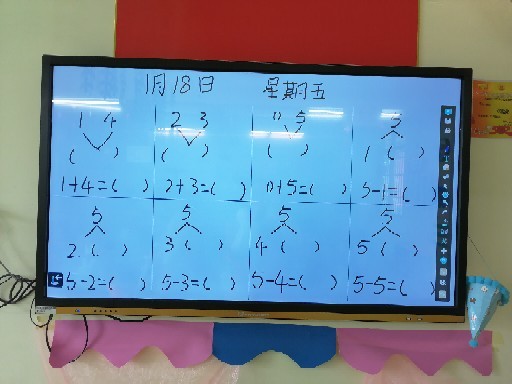 1月18日 星期五
1 4 2 3 0 5 5
( ) ( ) ( ) 1 ( )
1+4=( ) 2+3=( ) 0+5=( ) 5-1=( )
5 5 5 5
2 ( ) 3 ( ) 4 ( ) 5 ( )
5-2=( ) 5-3=( ) 5-4=( ) 5-5=( )